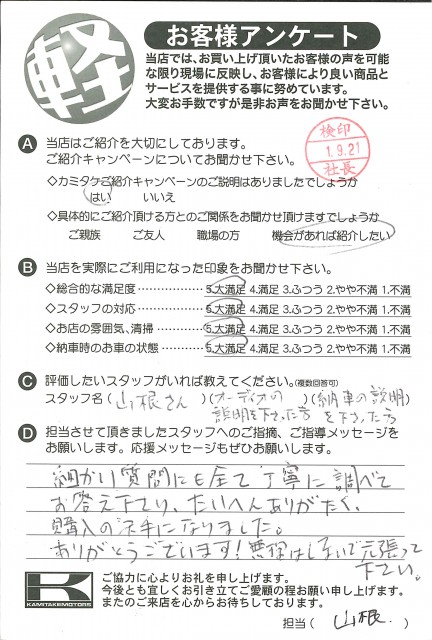 軽
お客様アンケート
当店では、お買い上げ頂いたお客様の声を可能
な限り現場に反映し、お客様により良い商品と
サービスを提供する事に努めています。
大変お手数ですが是非お声をお聞かせ下さい。
検印
1.9.21
社長
A 当店はご紹介を大切にしております。
ご紹介キャンペーンについてお聞かせ下さい。
◇カミタケご紹介キャンペーンのご説明はありましたでしょうか
はい いいえ
◇具体的にご紹介頂ける方とのご関係をお聞かせ頂けますでしょうか
ご親族 ご友人 職場の方 機会があれば紹介したい
B 当店を実際にご利用になった印象をお聞かせ下さい。
◇総合的な満足度………… 5.大満足 4.満足 3.ふつう 2.やや不満 1.不満
◇スタッフの対応………… 5.大満足 4.満足 3.ふつう 2.やや不満 1.不満
◇お店の雰囲気、清掃…… 5.大満足 4.満足 3.ふつう 2.やや不満 1.不満
◇納車時のお車の状態…… 5.大満足 4.満足 3.ふつう 2.やや不満 1.不満
C 評価したいスタッフがいれば教えてください。(複数回答可)
スタッフ名(山根さん)(オーディオの)(納車の説明)
説明を下さった方 を下さった方
D 担当させて頂きましたスタッフへのご指摘、ご指導メッセージを
お願いします。応援メッセージもぜひお願いします。
細かい質問にも全て丁寧に調べて
お答え下さり、たいへんありがたく、
購入の決手になりました。
ありがとうございます!無理はしないで元張って
下さい。
K
KAMITAKEMOTORS
ご協力に心よりお礼を申し上げます。
今後とも宜しくお引き立てご愛顧の程お願い申し上げます。
またのご来店を心からお待ちしております。
担当( 山根. )